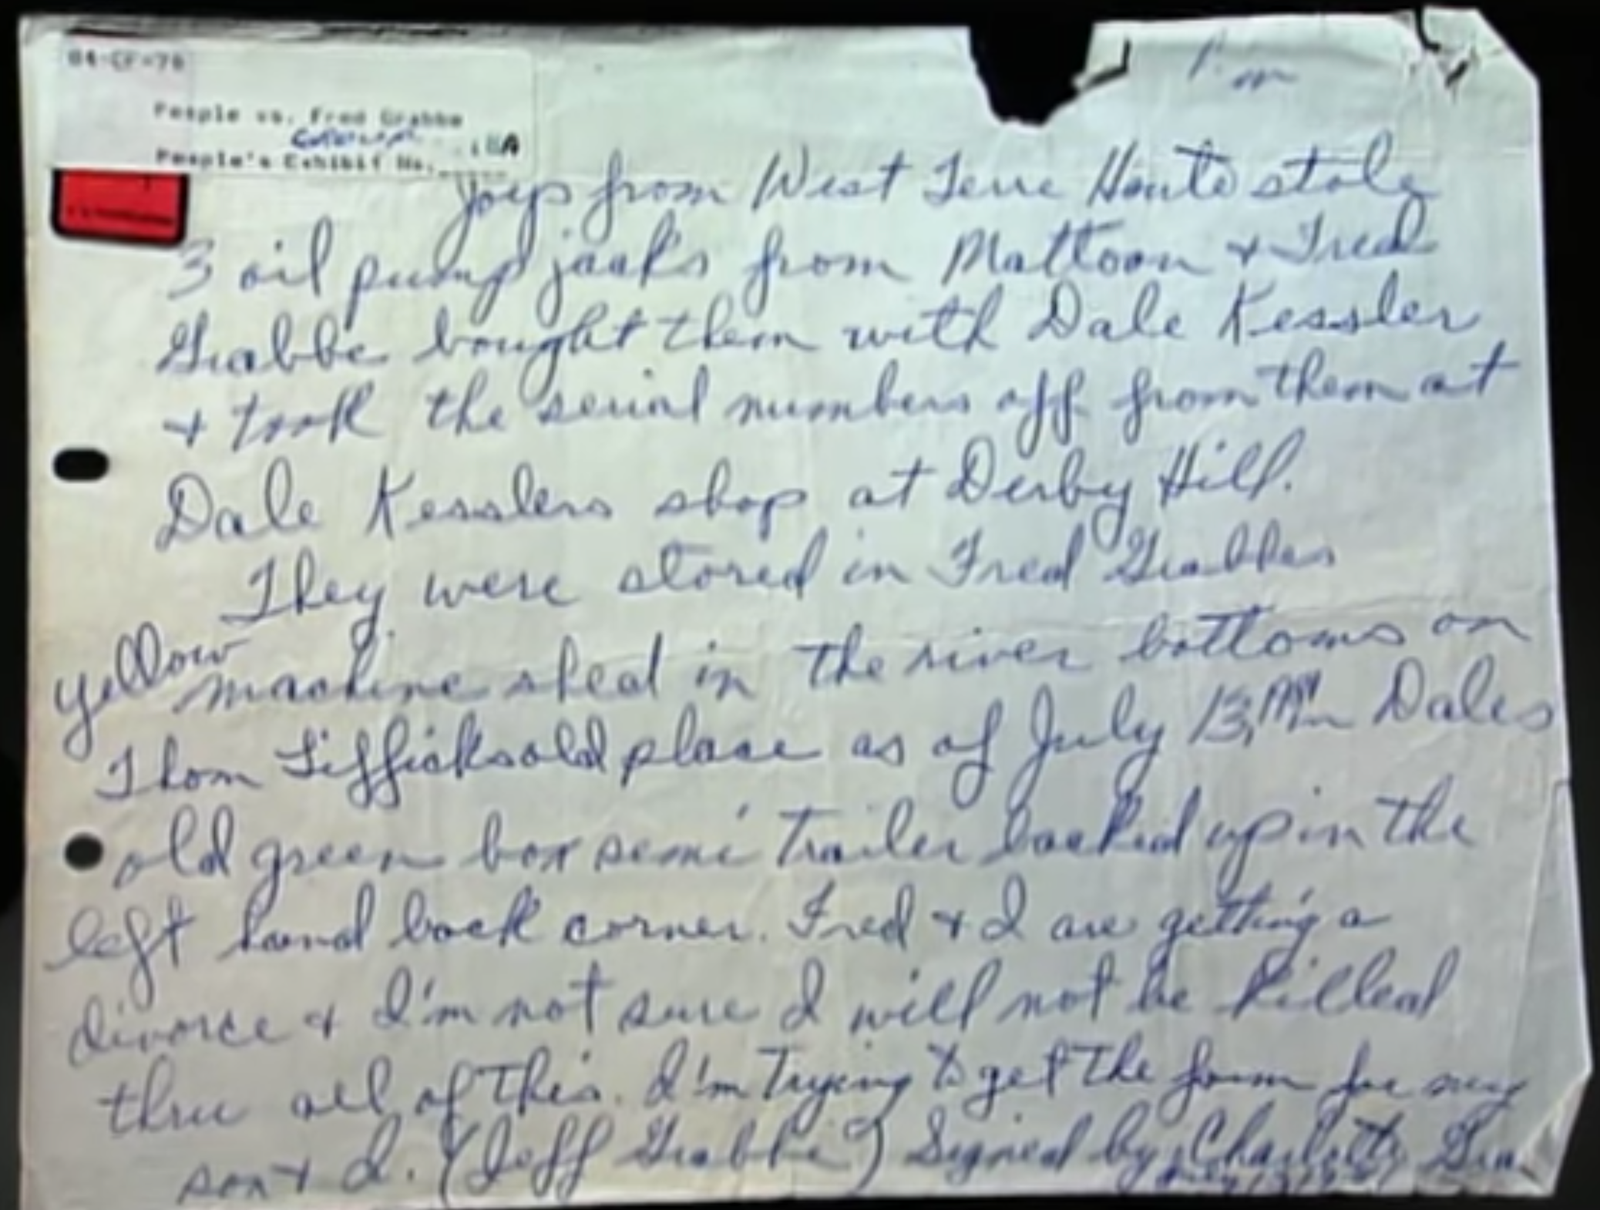 84-CF-76
People vs. Fred Grabbe
Group
People's Exhibit No. 18A
P. m
from West Terre Haute stole
3 oil pump jacks from Mattoon & Fred
Grabbe bought them with Dale Kessler
& took the serial numbers off from them at
Dale Kesslers shop at Derby Hill.
They were stored in Fred Grabbes
yellow machine shed in the river bottoms on
Thom old place as of July 13, Dales
old green box semi trailer backed up in the
left hand back corner. Fred & I are getting a
divorce & I'm not sure I will not be killed
thru all of this. I'm trying to get the farm for my
son & I. (Jeff Grabbe) Signed by Charlotte Gra